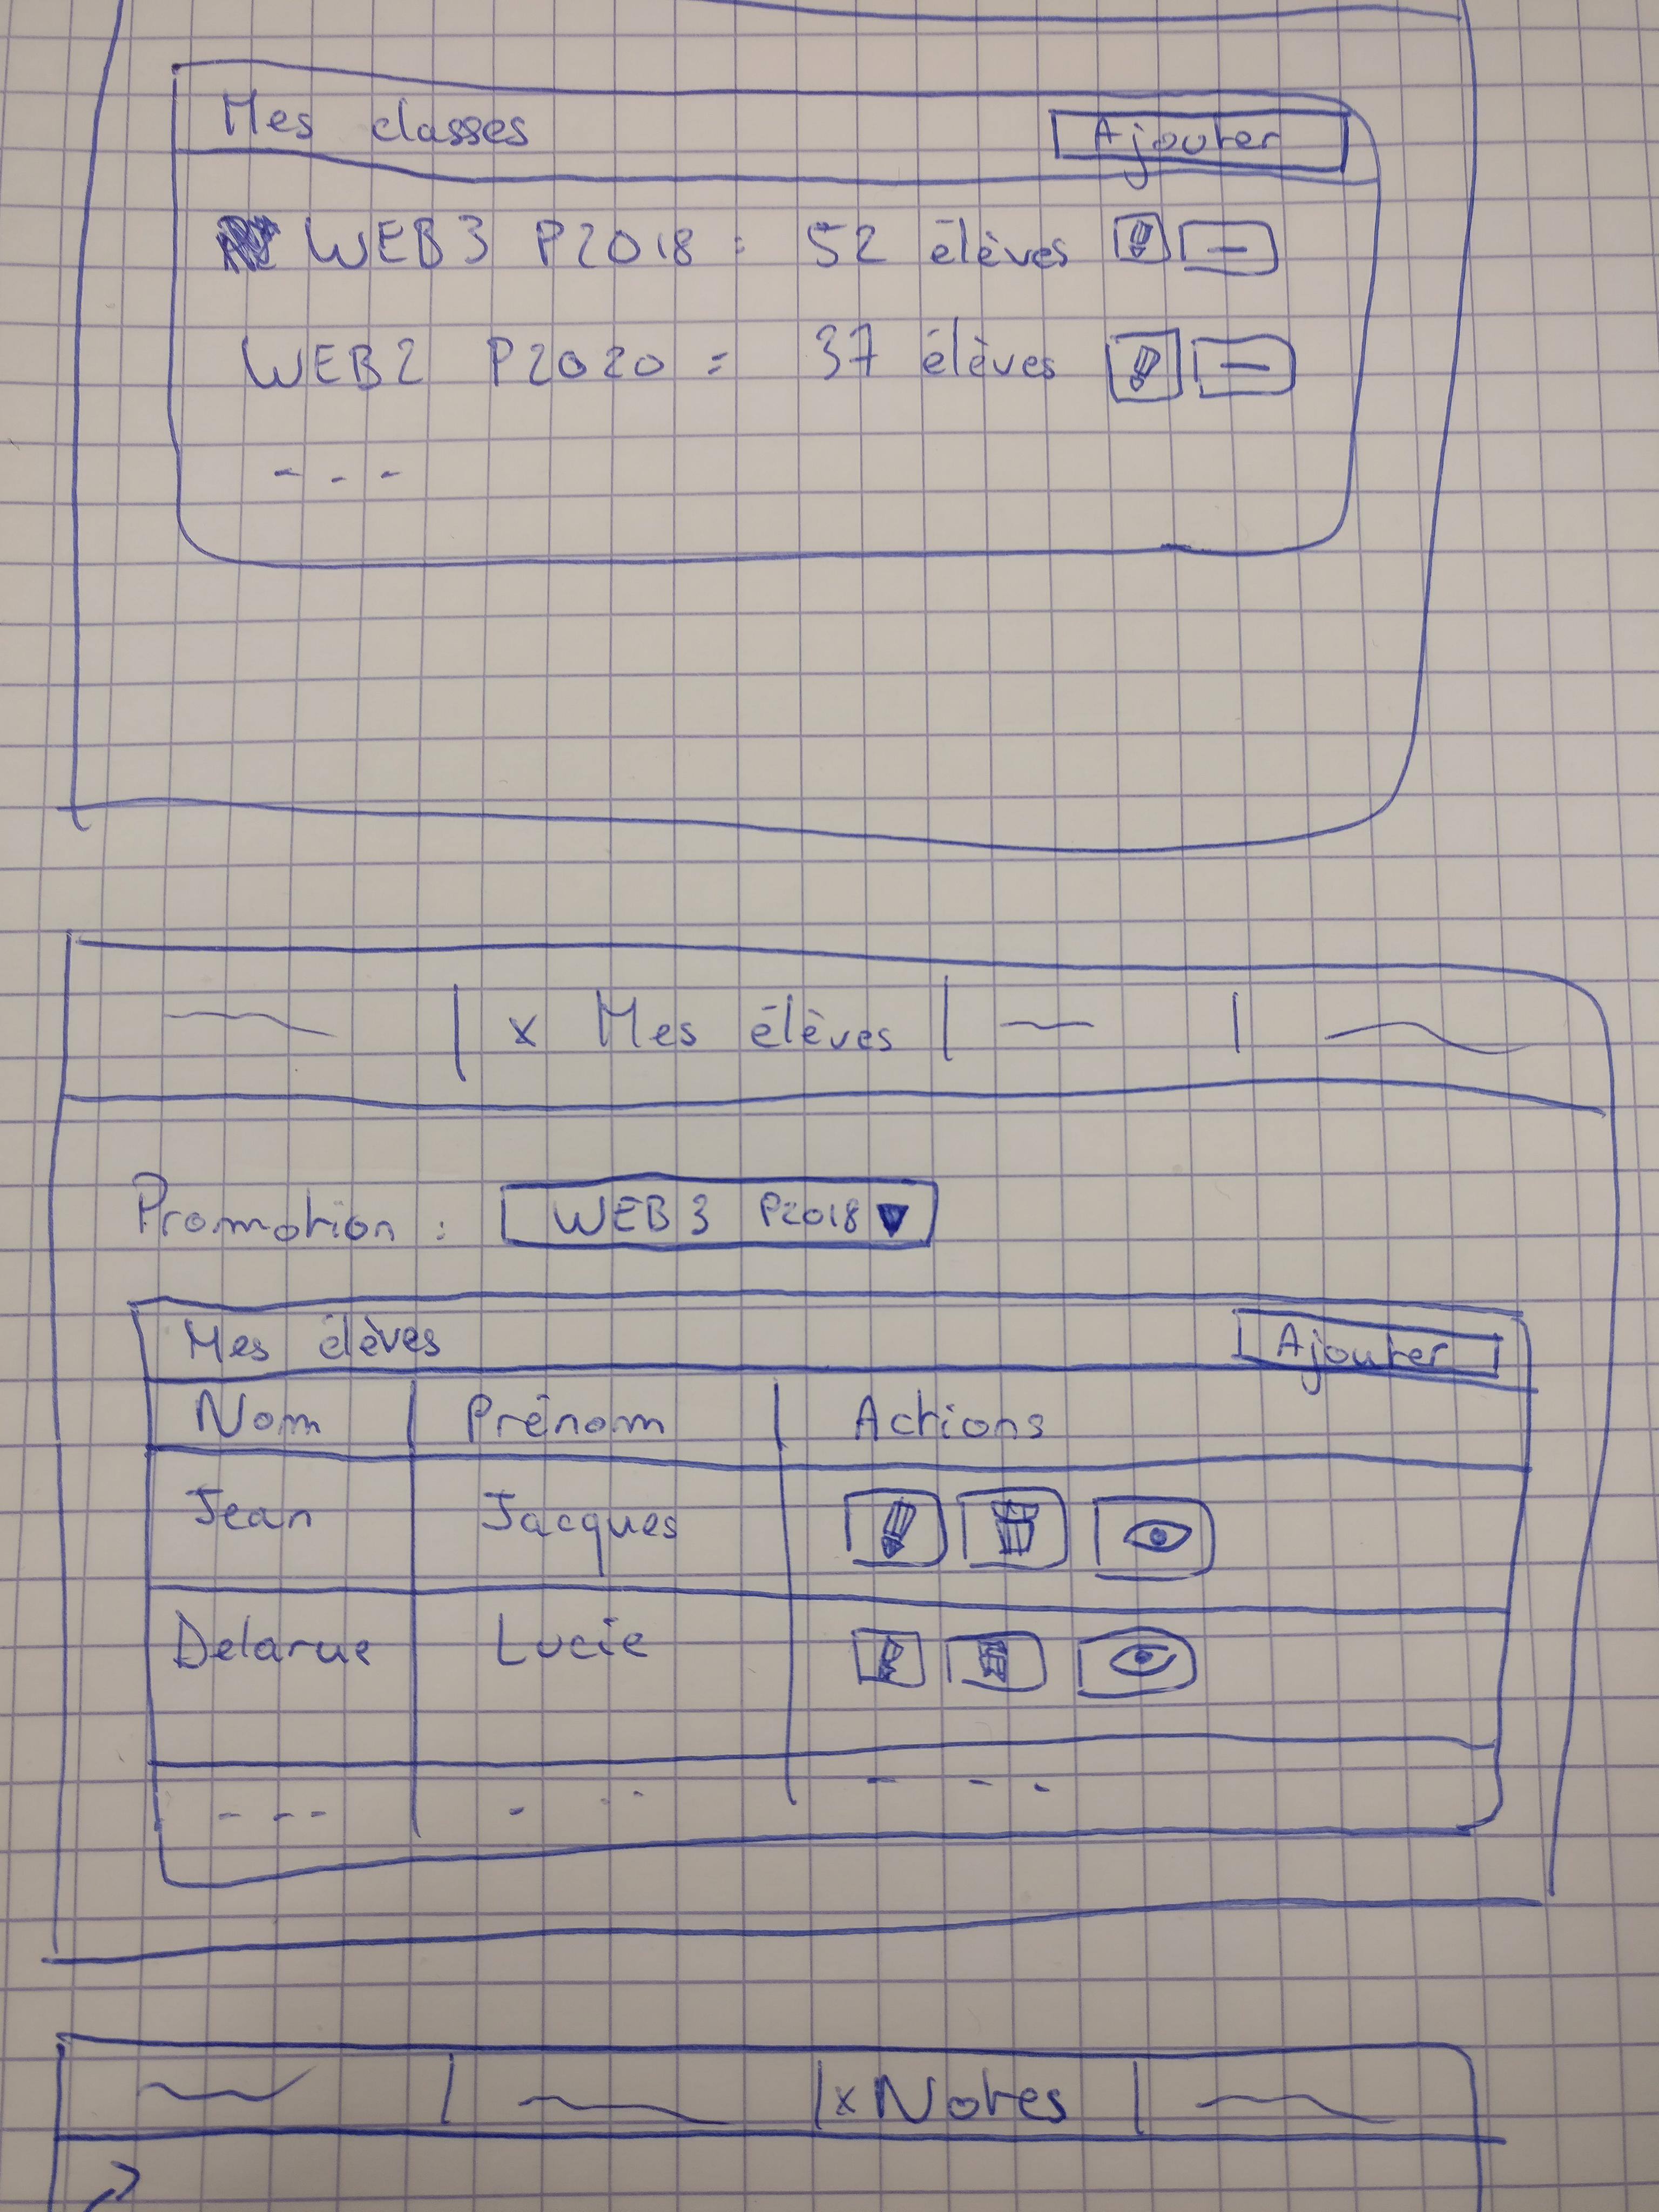 Mes classes Ajouter
WEB3 P2018 : 52 élèves
WEB2 P2020 = 37 élèves
---
| x Mes élèves | |
Promotion : WEB3 P2018 ▼
Mes élèves Ajouter
Nom | Prénom | Actions
Jean Jacques
Delarue Lucie
--- --- ---
| |x Notes |